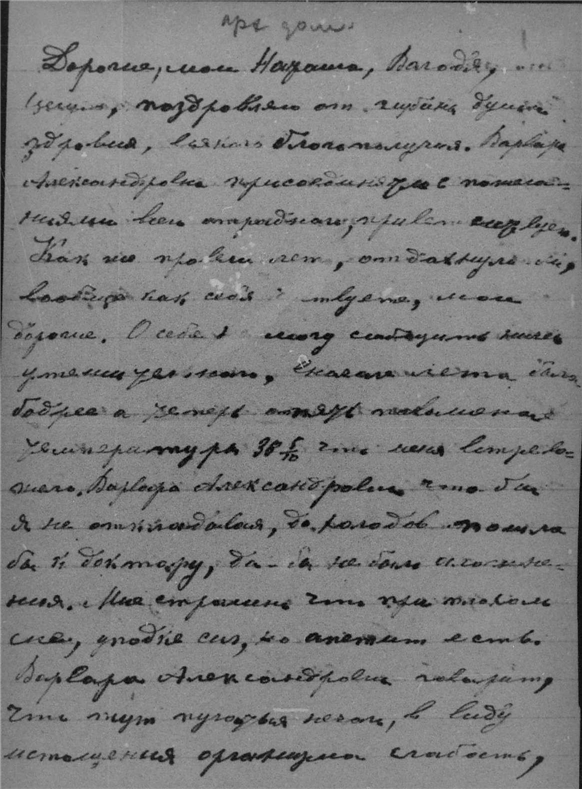 Дорогие, мои Наташа, Володя,
поздравляю от глубины души
здровия, всякого благополучия. Варвара
Александровна присоединяется с пожела-
ниями всего отрадного, привет
Как же провели лето, отдахнули ли,
вообще как себя чувствуете, мои
дорогие. О себе не могу сообщить ничего
утешительного, вначале лета была
бодрее а теперь опять повышение
температуры 38 5/10 что меня встрево-
жило, Варвара Александровна что бы
я не откладывая, до холодов пошла
бы к доктору, да-бы не было осложне-
ния. Мне странно что при плохом
сне, упадке сил, но апетит есть.
Варвара Александровна говорит,
что тут пугаться нечего, в виду
истощения организма слабость,